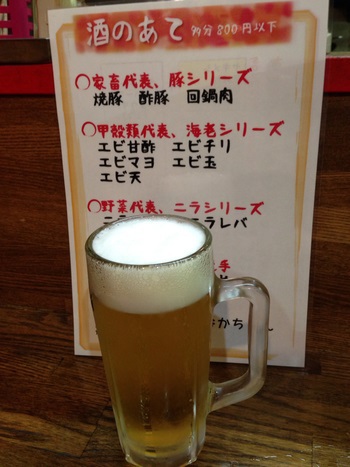 酒のあて 多分800円以下
○家畜代表、豚シリーズ
焼豚 酢豚 回鍋肉
○甲殻類代表、海老シリーズ
エビ甘酢 エビチリ
エビマヨ エビ玉
エビ天
○野菜代表、ニラシリーズ
ニラ ラレバ
手
かち